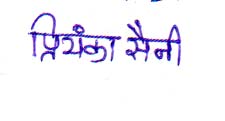 प्रियंका सैनी